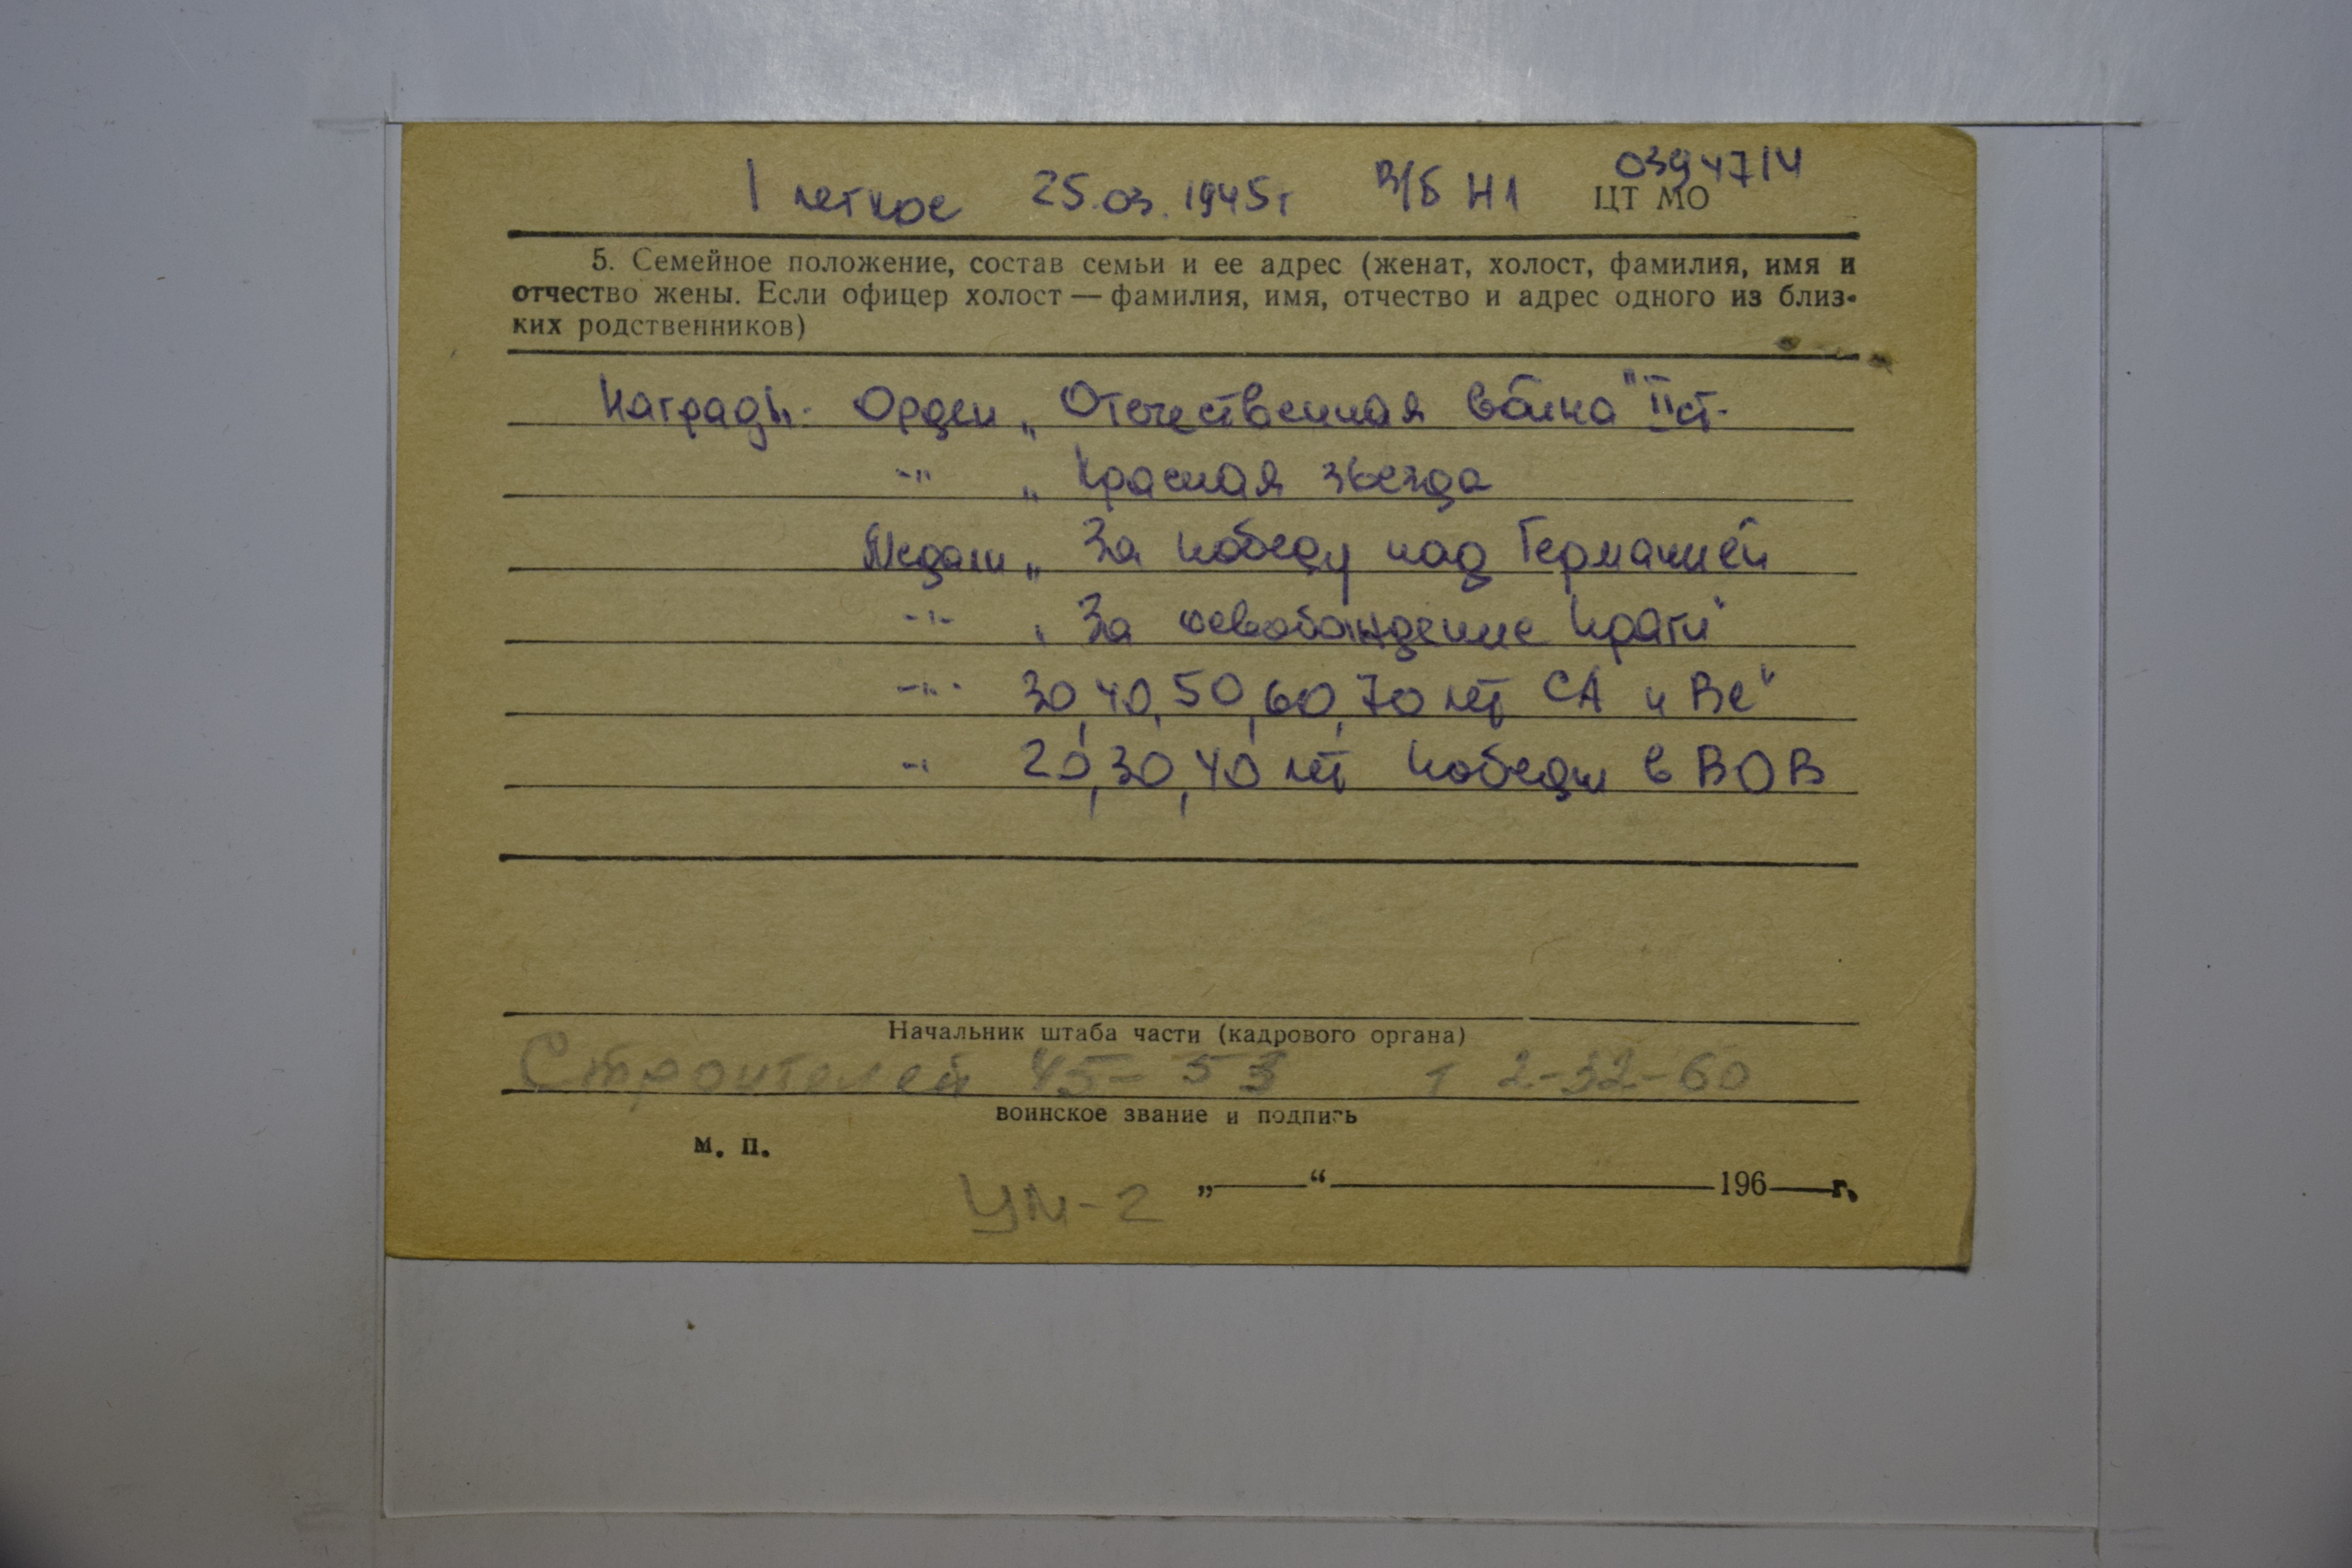 0394714
1 легкое 25.03.1945г В/Б Н1 ЦТ МО
5. Семейное положение, состав семьи и ее адрес (женат, холост, фамилия, имя и
отчество жены. Если офицер холост — фамилия, имя, отчество и адрес одного из близ-
ких родственников)
Награды: Орден „Отечественная война" II ст.
-"- „Красная звезда
Медали „За победу над Германией
-"- „За освобождение Праги"
-"- 30, 40, 50, 60, 70 лет СА и ВС"
-"- 20, 30, 40 лет Победы в ВОВ
Начальник штаба части (кадрового органа)
Строителей 45-53 т 2-32-60
воинское звание и подпись
м. п.
„——“ ——— 196——г.
УМ-2